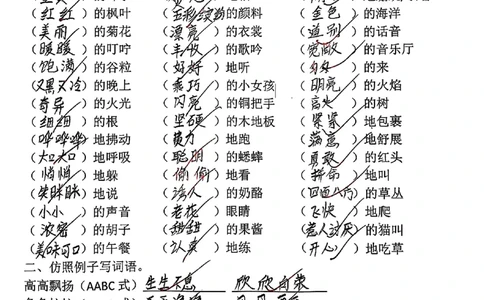 （红红）的枫叶 （五彩缤纷）的颜料 （金色）的海洋
（美丽）的菊花 （漂亮）的衣裳 （道别）的话音
（暖暖）的叮咛 （丰收）的歌吟 （宽敞）的音乐厅
（饱满）的谷粒 （好好）地听 （匆匆）的来
（又黑又冷）的晚上 （乖巧）的小女孩 （明亮）的火焰
（奇异）的火光 （闪亮）的铜把手 （高大）的树
（细细）的根 （坚硬）的木地板 （紧紧）地包裹
（哗哗哗）地拂动 （费力）地跑 （满意）地舒展
（大口大口）地呼吸 （聪明）的蟋蟀 （勇敢）的红头
（悄悄）地躲 （偷偷）地看 （拼命）地叫
（笑眯眯）地说 （诱人）的奶酪 （四面八方）的草丛
（小小）的声音 （老花）眼睛 （飞快）地爬
（浓密）的胡子 （甜甜）的果酱 （惹人讨厌）的猫叫
（美味可口）的午餐 （认真）地练 （开心）地吃草
二、仿照例子写词语。
高高飘扬（AABC 式）生生不息 欣欣向荣